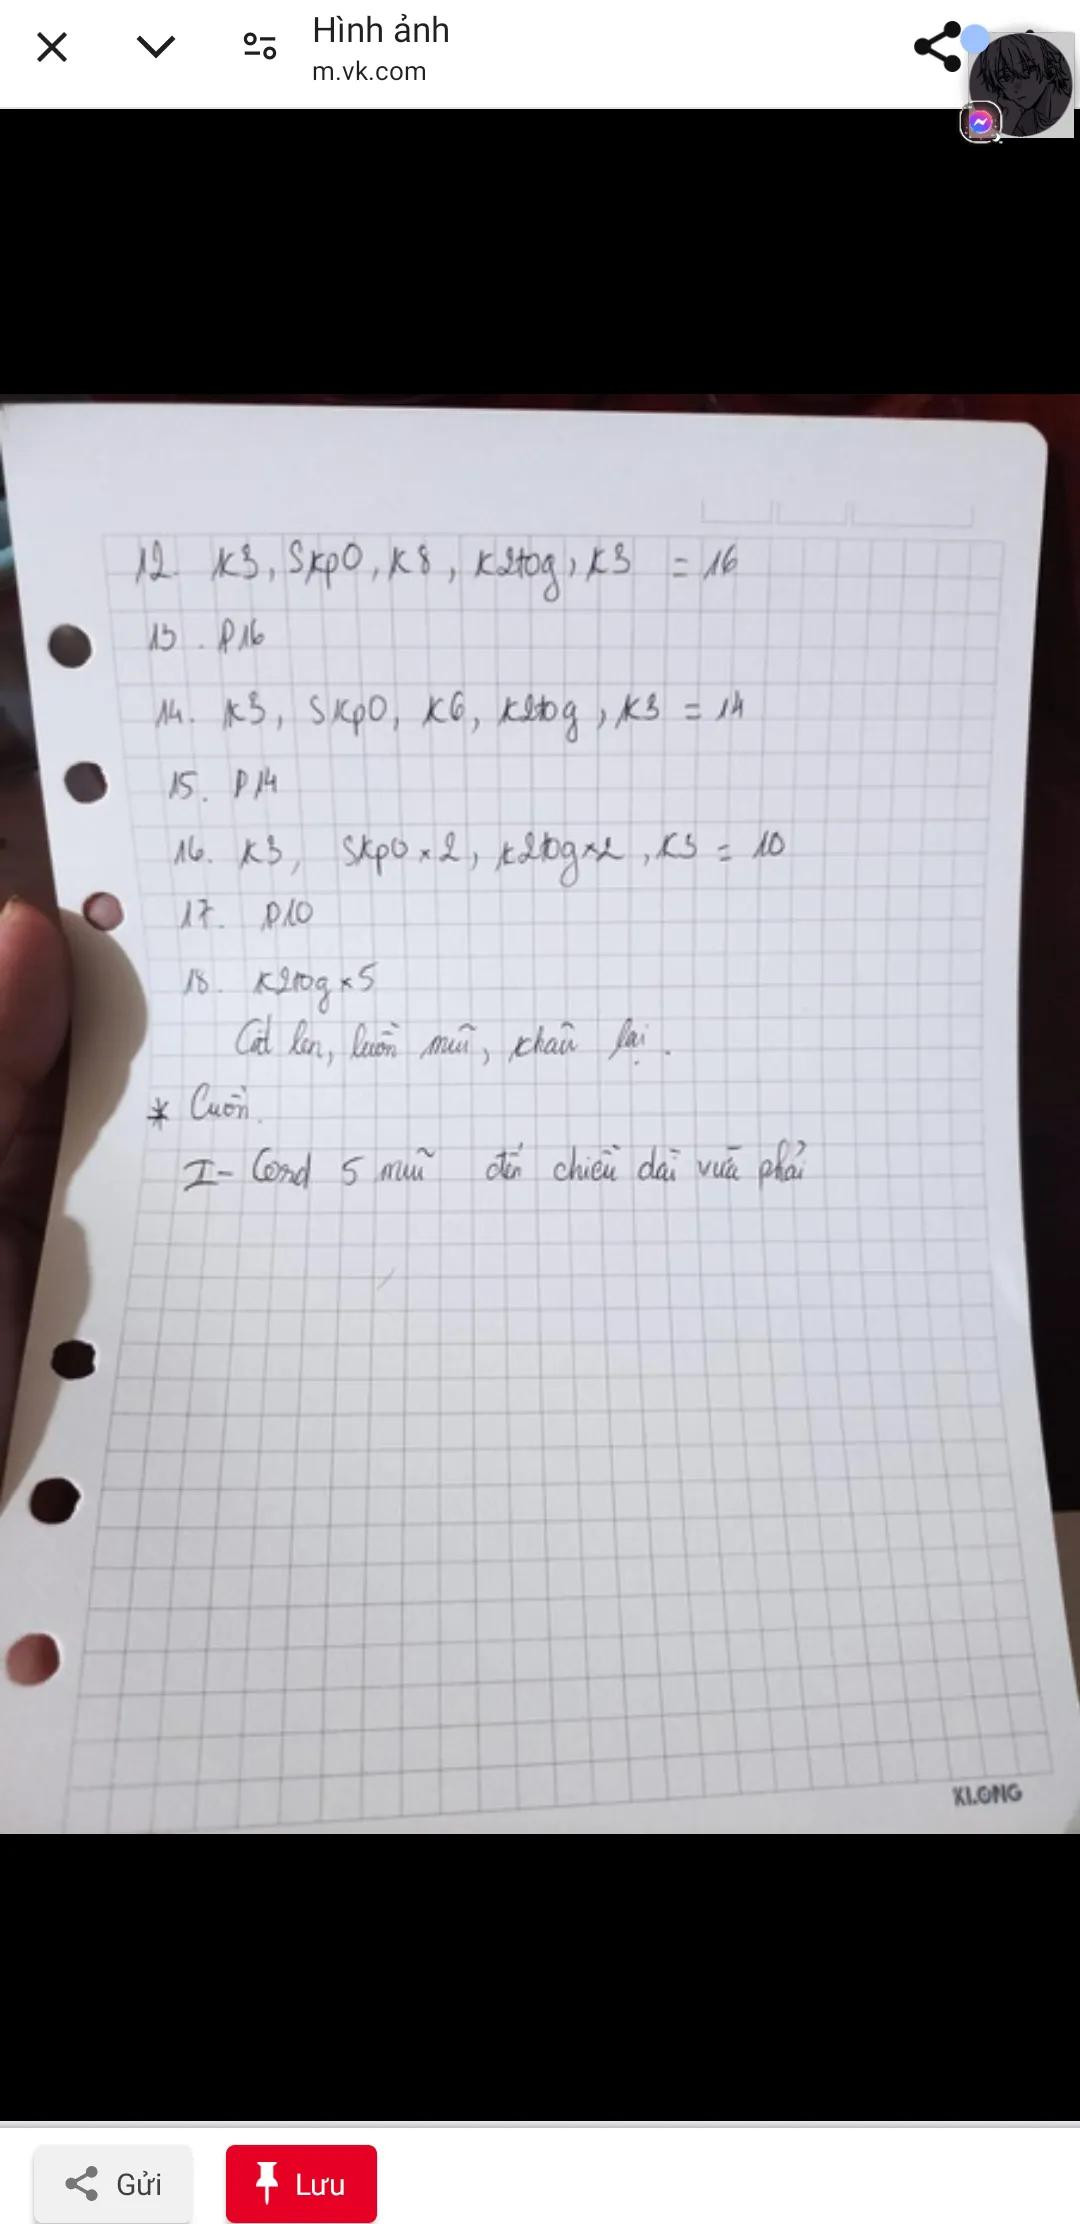 Hình ảnh
m.vk.com
12. K3, SKpO, K8, K2tog, K3 = 16
13. P16
14. K3, SKpO, K6, K2tog, K3 = 14
15. P14
16. K3, SKpO × 2, K2tog × 2, K3 = 10
17. P10
18. K2tog × 5
Cắt len, luồn mũi, khâu lại.
* Cuốn.
I-Cord 5 mũi đến chiều dài vừa phải
KLONG
Gửi
Lưu